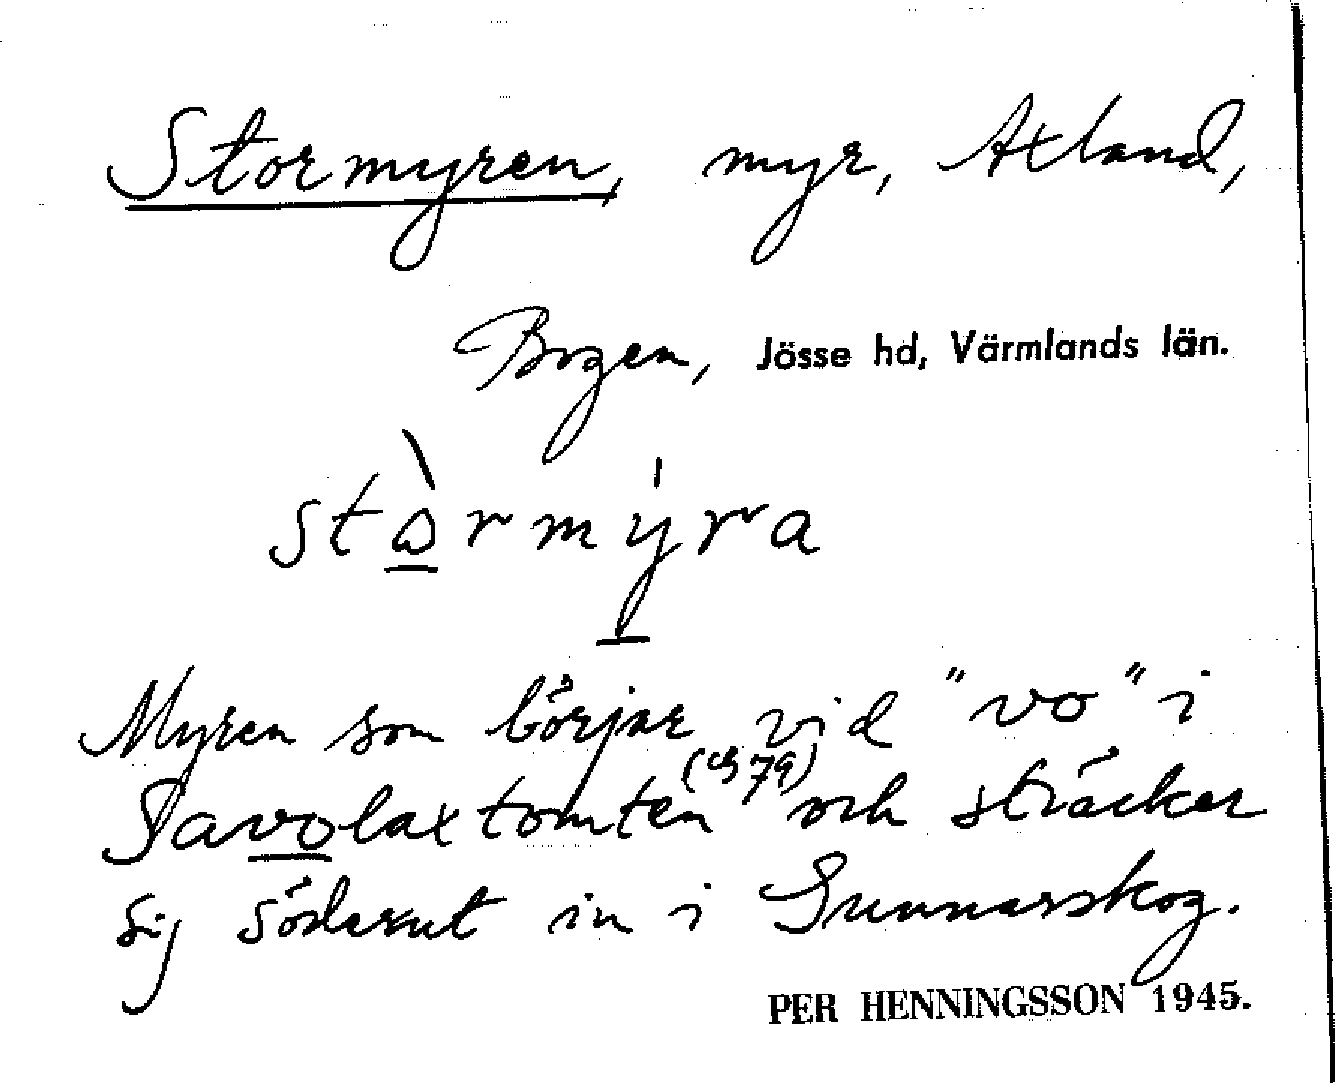 Stormyren, myr, Axland,
Bogen, Jösse hd, Värmlands län.
stòrmýra
Myren som börjar vid "vo" i
Savolaxtomten och sträcker
sig söderut in i Gunnarskog.
PER HENNINGSSON 1945.